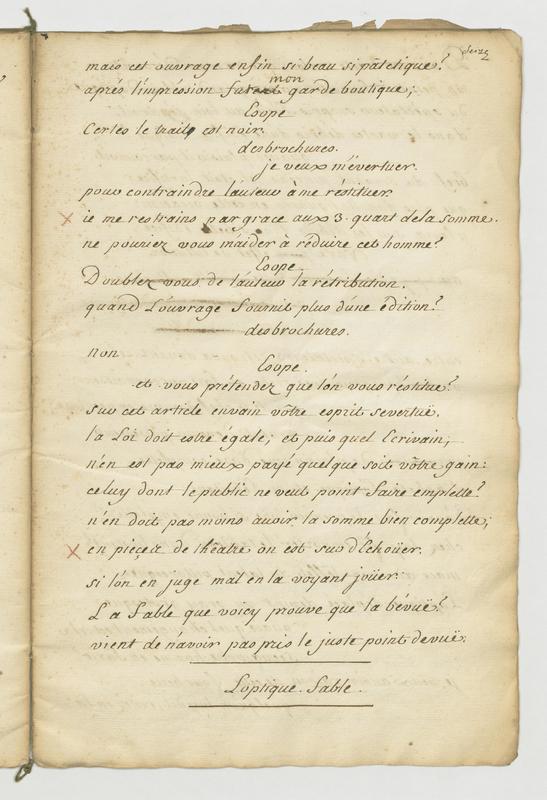 mais cet ouvrage enfin si beau si patetique?
mon
aprés l'impréssion fut garde boutique;
Esope
Certes le trait est noir.
desbrochures.
je veux m'évertuer.
pour contraindre l'auteur à me réstituer.
ie me restrains par grace aux 3. quart dela somme.
ne pouriez vous m'aider à réduire cet homme?
Esope.
Doublez vous de l'auteur la rétribution.
quand L'ouvrage fournit plus d'une édition?
desbrochures.
non
Esope.
et vous prétendez que l'on vous réstitue?
sur cet article envain vôtre esprit severtuë,
la Loi doit estre égale; et puis quel Ecrivain;
n'en est pas mieux payé quelque soit vôtre gain:
celuy dont le public ne veut point faire emplette?
n'en doit pas moins avoir la somme bien complette;
en pieçes de théatre on est sur d'Echoüer.
si l'on en juge mal en la voyant joüer:
La Fable que voicy prouve que la bévuë?
vient de n'avoir pas pris le juste point devuë.
L'optique. Fable.